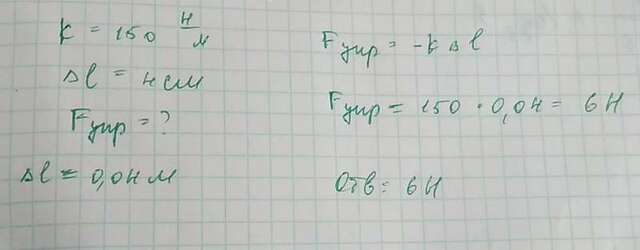 k = 150 Н/м
Δl = 4 см
Fупр = ?
Δl = 0,04 м
Fупр = -k Δl
Fупр = 150 · 0,04 = 6 Н
Отв: 6 Н